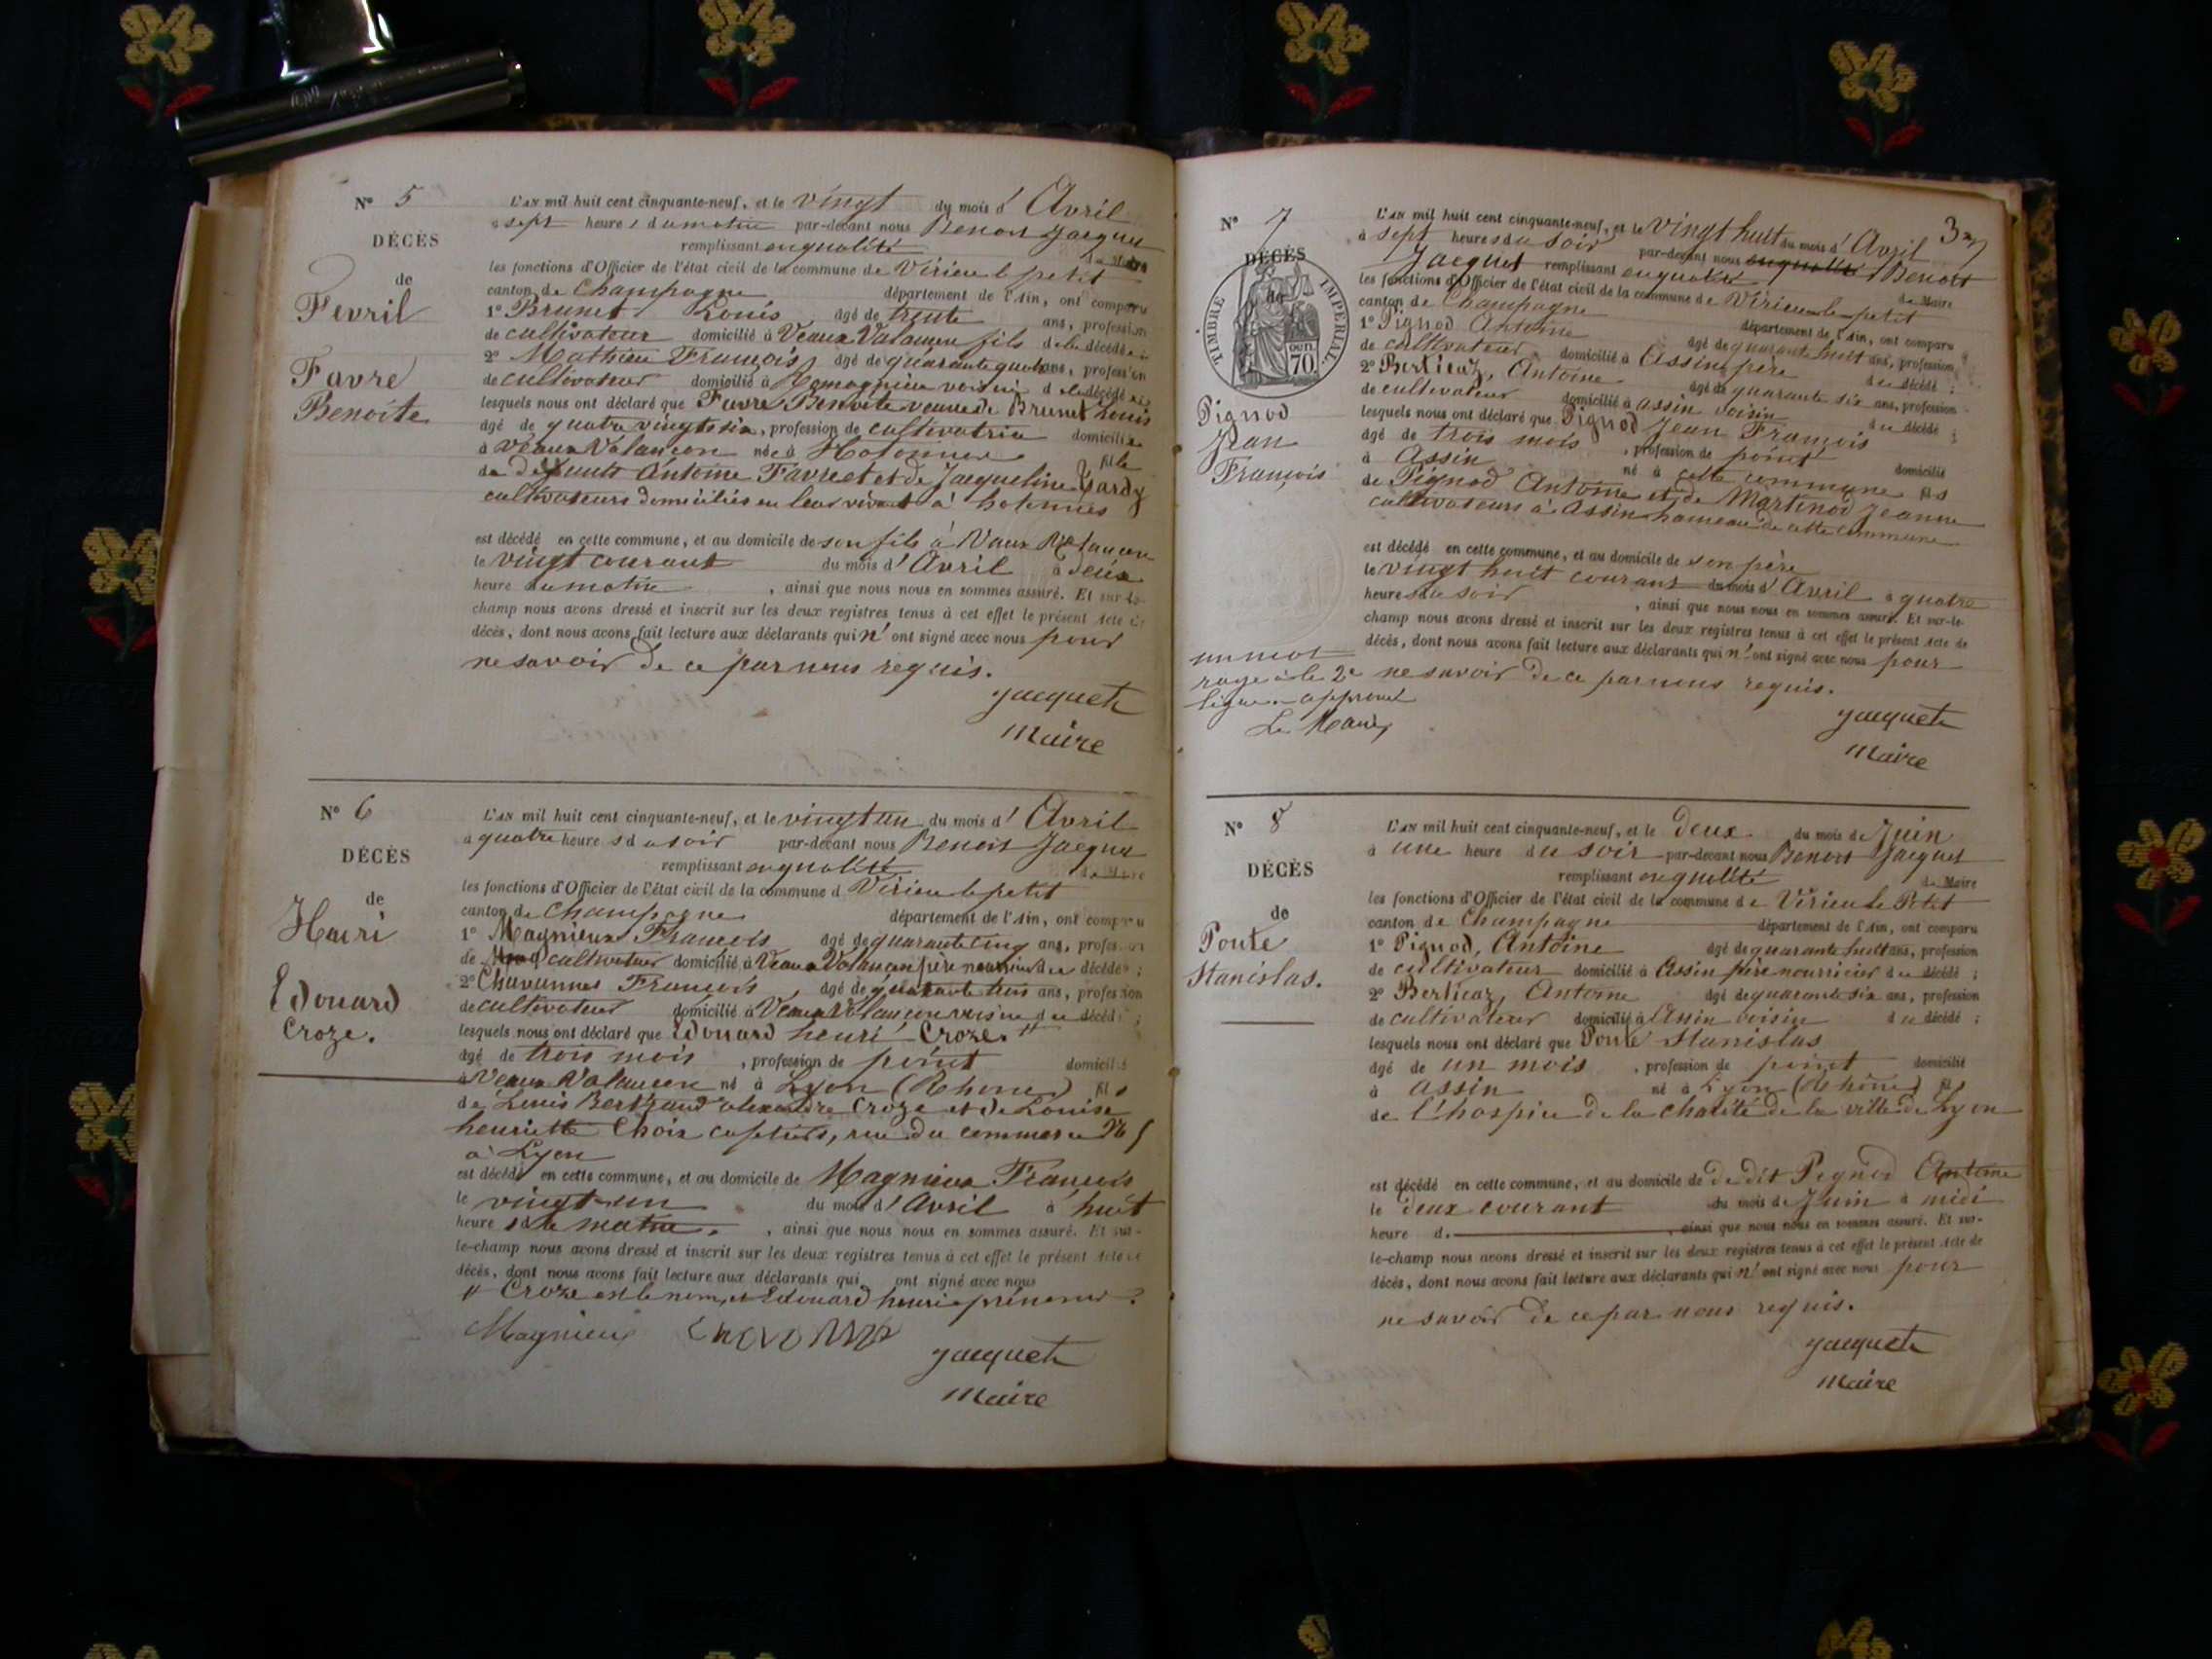 N° 5
DÉCÈS
de
Fevril
Favre
Benoite
L'AN mil huit cent cinquante-neuf, et le vingt du mois d' Avril
à sept heures du matin par-devant nous Benoit Jacquet
remplissant en qualité de Maire
les fonctions d'Officier de l'état civil de la commune de Virieu le petit
canton de Champagne département de l'Ain, ont comparu
1° Brunet Louis agé de trente ans, profession
de cultivateur domicilié à Veaux Valancon fils de la décédée
2° Mathieu François, agé de quarante quatre ans, profession
de cultivateur domicilié à voisin de la décédée
lesquels nous ont déclaré que Favre Benoite veuve de Brunet Louis
agé de quatre vingt six, profession de cultivatrice domiciliée
à Veaux Valancon née à Hotonnes fille
de défunts Antoine Favre et de Jacqueline
cultivateurs domiciliés en leur vivant à hotonnes
est décédé en cette commune, et au domicile de son fils à Vaux Valancon
le vingt courant du mois d' Avril à deux
heure du matin, ainsi que nous nous en sommes assuré. Et sur-le-
champ nous avons dressé et inscrit sur les deux registres tenus à cet effet le présent Acte de
décès, dont nous avons fait lecture aux déclarants qui n' ont signé avec nous pour
ne savoir de ce par nous requis.
Jacquet
Maire
N° 6
DÉCÈS
de
Henri
Edouard
Croze.
L'AN mil huit cent cinquante-neuf, et le vingt un du mois d' Avril
à quatre heures du soir par-devant nous Benoit Jacquet
remplissant en qualité de Maire
les fonctions d'Officier de l'état civil de la commune d Virieu le petit
canton de Champagne département de l'Ain, ont comparu
1° Magnieux François agé de quarante cinq ans, profession
de cultivateur domicilié à Veaux Valancon père nourricier du décédé ;
2° Chavannes François agé de quarante trois ans, profession
de cultivateur domicilié à Veaux Valancon voisin du décédé ;
lesquels nous ont déclaré que Edouard henri Croze. #
agé de trois mois, profession de point domicilié
à Veaux Valancon né à Lyon (Rhone) fils
de Louis Bertrand alexandre Croze et de Louise
henriette Choix cafetiers, rue du commerce
à Lyon
est décédé en cette commune, et au domicile de Magnieux François
le vingt un du mois d' Avril à huit
heures du matin, ainsi que nous nous en sommes assuré. Et sur-
le-champ nous avons dressé et inscrit sur les deux registres tenus à cet effet le présent Acte de
décès, dont nous avons fait lecture aux déclarants qui ont signé avec nous
# Croze est le nom, et Edouard henri prénoms.
Magnieux Chavannes
Jacquet
Maire
3
N° 7
DÉCÈS
de
TIMBRE IMPÉRIAL
70
Pignod
Jean
François
L'AN mil huit cent cinquante-neuf, et le vingt huit du mois d' Avril
à sept heures du soir par-devant nous en qualité Benoit
Jacquet remplissant en qualité de Maire
les fonctions d'Officier de l'état civil de la commune de Virieu le petit
canton de Champagne département de l'Ain, ont comparu
1° Pignod Antoine agé de quarante huit ans, profession
de cultivateur domicilié à Assin père du décédé ;
2° Berlioz, Antoine agé de quarante six ans, profession
de cultivateur domicilié à assin voisin du décédé ;
lesquels nous ont déclaré que Pignod Jean François
agé de trois mois, profession de point domicilié
à Assin né à cette commune fils
de Pignod Antoine et de Martinod Jeanne
cultivateurs à Assin hameau de cette commune
est décédé en cette commune, et au domicile de son père
le vingt huit courant du mois d' Avril à quatre
heures du soir, ainsi que nous nous en sommes assuré. Et sur-le-
champ nous avons dressé et inscrit sur les deux registres tenus à cet effet le présent Acte de
décès, dont nous avons fait lecture aux déclarants qui n' ont signé avec nous pour
ne savoir de ce par nous requis.
un mot
rayé à la 2e
ligne approuvé
Le Maire
Jacquet
Maire
N° 8
DÉCÈS
de
Ponte
Stanislas.
L'AN mil huit cent cinquante-neuf, et le deux du mois de Juin
à une heure du soir par-devant nous Benoit Jacquet
remplissant en qualité de Maire
les fonctions d'Officier de l'état civil de la commune de Virieu le Petit
canton de Champagne département de l'Ain, ont comparu
1° Pignod, Antoine agé de quarante huit ans, profession
de cultivateur domicilié à Assin père nourricier du décédé ;
2° Berlioz, Antoine agé de quarante six ans, profession
de cultivateur domicilié à Assin voisin du décédé ;
lesquels nous ont déclaré que Ponte Stanislas
agé de un mois, profession de point domicilié
à assin né à Lyon (Rhône) fils
de l'hospice de la charité de la ville de Lyon
est décédé en cette commune, et au domicile de de dit Pignod Antoine
le deux courant du mois de Juin à midi
heure d. , ainsi que nous nous en sommes assuré. Et sur-
le-champ nous avons dressé et inscrit sur les deux registres tenus à cet effet le présent Acte de
décès, dont nous avons fait lecture aux déclarants qui n' ont signé avec nous pour
ne savoir de ce par nous requis.
Jacquet
Maire